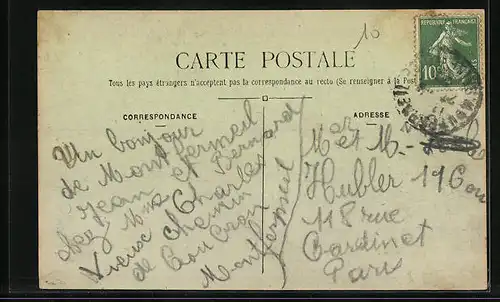 10
CARTE POSTALE
Tous les pays étrangers n'acceptent pas la correspondance au recto (Se renseigner à la Poste
CORRESPONDANCE
Un bonjour
de Montfermeil
Jean et Bernard
chez Mme Charles
Vieux chemin
de Coucron
Montfermeil
ADRESSE
Mer et Me
Hubler
118 rue
Cardinet
Paris
RÉPUBLIQUE FRANÇAISE
10